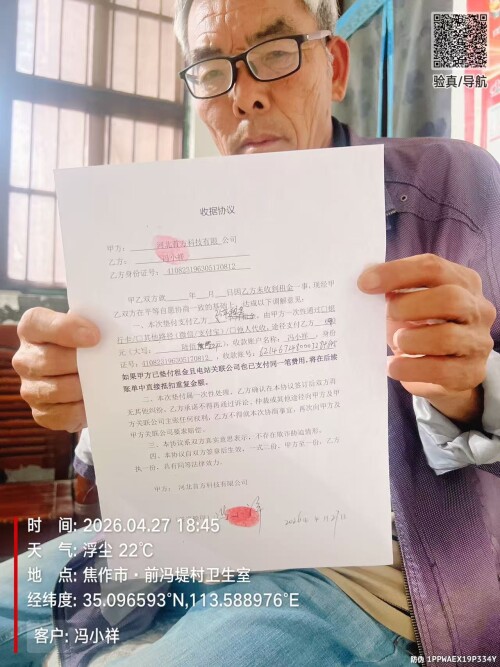 验真/导航
收据协议
甲方： 河北首方科技有限 公司
乙方： 冯小祥
乙方身份证号： 410825196205170812
甲乙双方就 年 月 日乙方未收到租金一事，现经甲
乙双方在平等自愿协商一致的基础上，达成以下调解意见：
一、本次垫付支付乙方 由甲方一次性通过□银
行卡/□其他路径（微信/支付宝）/□他人代收，途径支付乙方
元（大写： 陆佰 收款账户名称： 冯小祥，身份
证号：410825196205170812，收款账号：
如果甲方已垫付租金且电站关联公司也已支付同一笔费用，将在后续
账单中直接抵扣重复金额。
二、本次垫付属一次性处理，乙方确认在本协议签订后双方再
无其他纠纷，乙方承诺不得再通过诉讼、仲裁或其他途径向甲方及甲
方关联公司主张任何权利，乙方不得就本次协商事宜，再次向甲方及
甲方关联公司要求赔偿。
三、本协议系双方真实意思表示，不存在欺诈胁迫情形。
四、本协议自双方签署后生效，一式二份，甲方至一份，乙方
执一份，具有同等法律效力。
甲方：河北首方科技有限公司
时 间: 2026.04.27 18:45
天 气: 浮尘 22℃
地 点: 焦作市·前冯堤村卫生室
经纬度: 35.096593°N,113.588976°E
客户: 冯小祥
防伪 1PPWAEX19P334Y